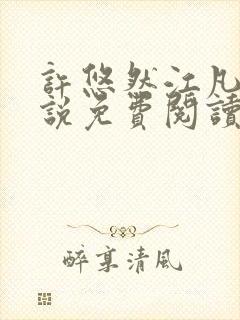 許悠然江凡
說免費閱讀
醉享清風